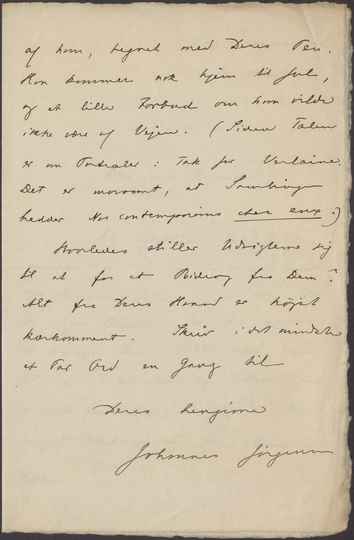 af ham, tegnet med Deres Pen.
Han kommer nok hjem til Jul,
og et lille Forbud om ham vilde
ikke være af Vejen. (Siden Talen
er om Portraiter: Tak for Verlaine.
Det er morsomt, at Samlingen
hedder Nos contemporains chez eux.)
Hvorledes stiller Udsigterne sig
til at faa et Bidrag fra Dem?
Alt fra Deres Haand er højst
kærkomment. Skriv i det mindste
et Par Ord en Gang til
Deres hengivne
Johannes Jørgensen